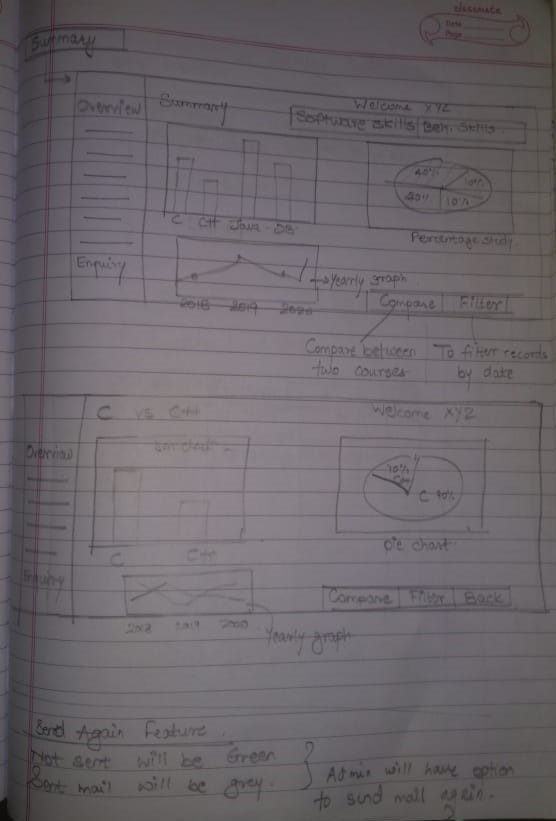 classmate
Date
Page
Summary
Overview
Summary
Welcome XYZ
Software skills Beh. Skills
C C++ Java DB
20% 10%
20% 10%
Percentage study.
Enquiry
Yearly graph
2018 2019 2020
Compare Filter
Compare between
two courses
To filter records
by date
C vs C++
Welcome XYZ
Overview
bar chart
10%
C++
C 90%
C C++
pie chart
Enquiry
Compare Filter Back
2018 2019 2000
Yearly graph
Send Again Feature.
Not sent will be Green
Sent mail will be grey.
Admin will have option
to send mail again.